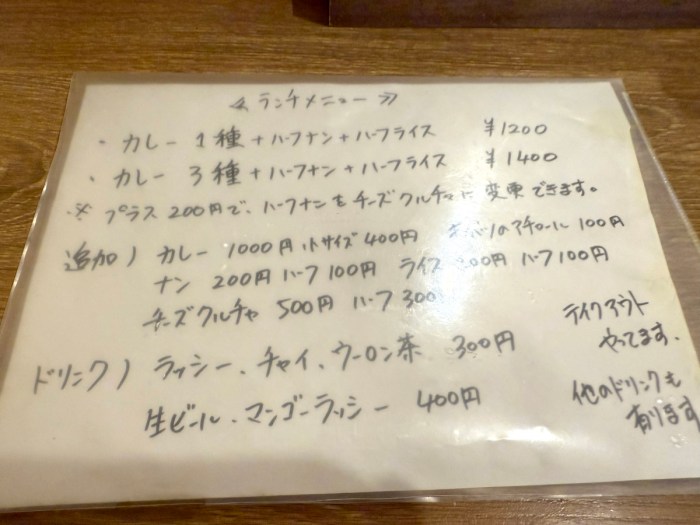 ≪ランチメニュー≫
・カレー 1種+ハーフナン+ハーフライス ¥1200
・カレー 3種+ハーフナン+ハーフライス ¥1400
※プラス200円で、ハーフナンをチーズクルチャに変更できます。
追加) カレー 1000円 小サイズ400円 キャベツのアチャール 100円
ナン 200円 ハーフ100円 ライス 200円 ハーフ100円
チーズクルチャ 500円 ハーフ300
ドリンク) ラッシー、チャイ、ウーロン茶 300円
生ビール、マンゴーラッシー 400円
テイクアウト
やってます.
他のドリンクも
有ります